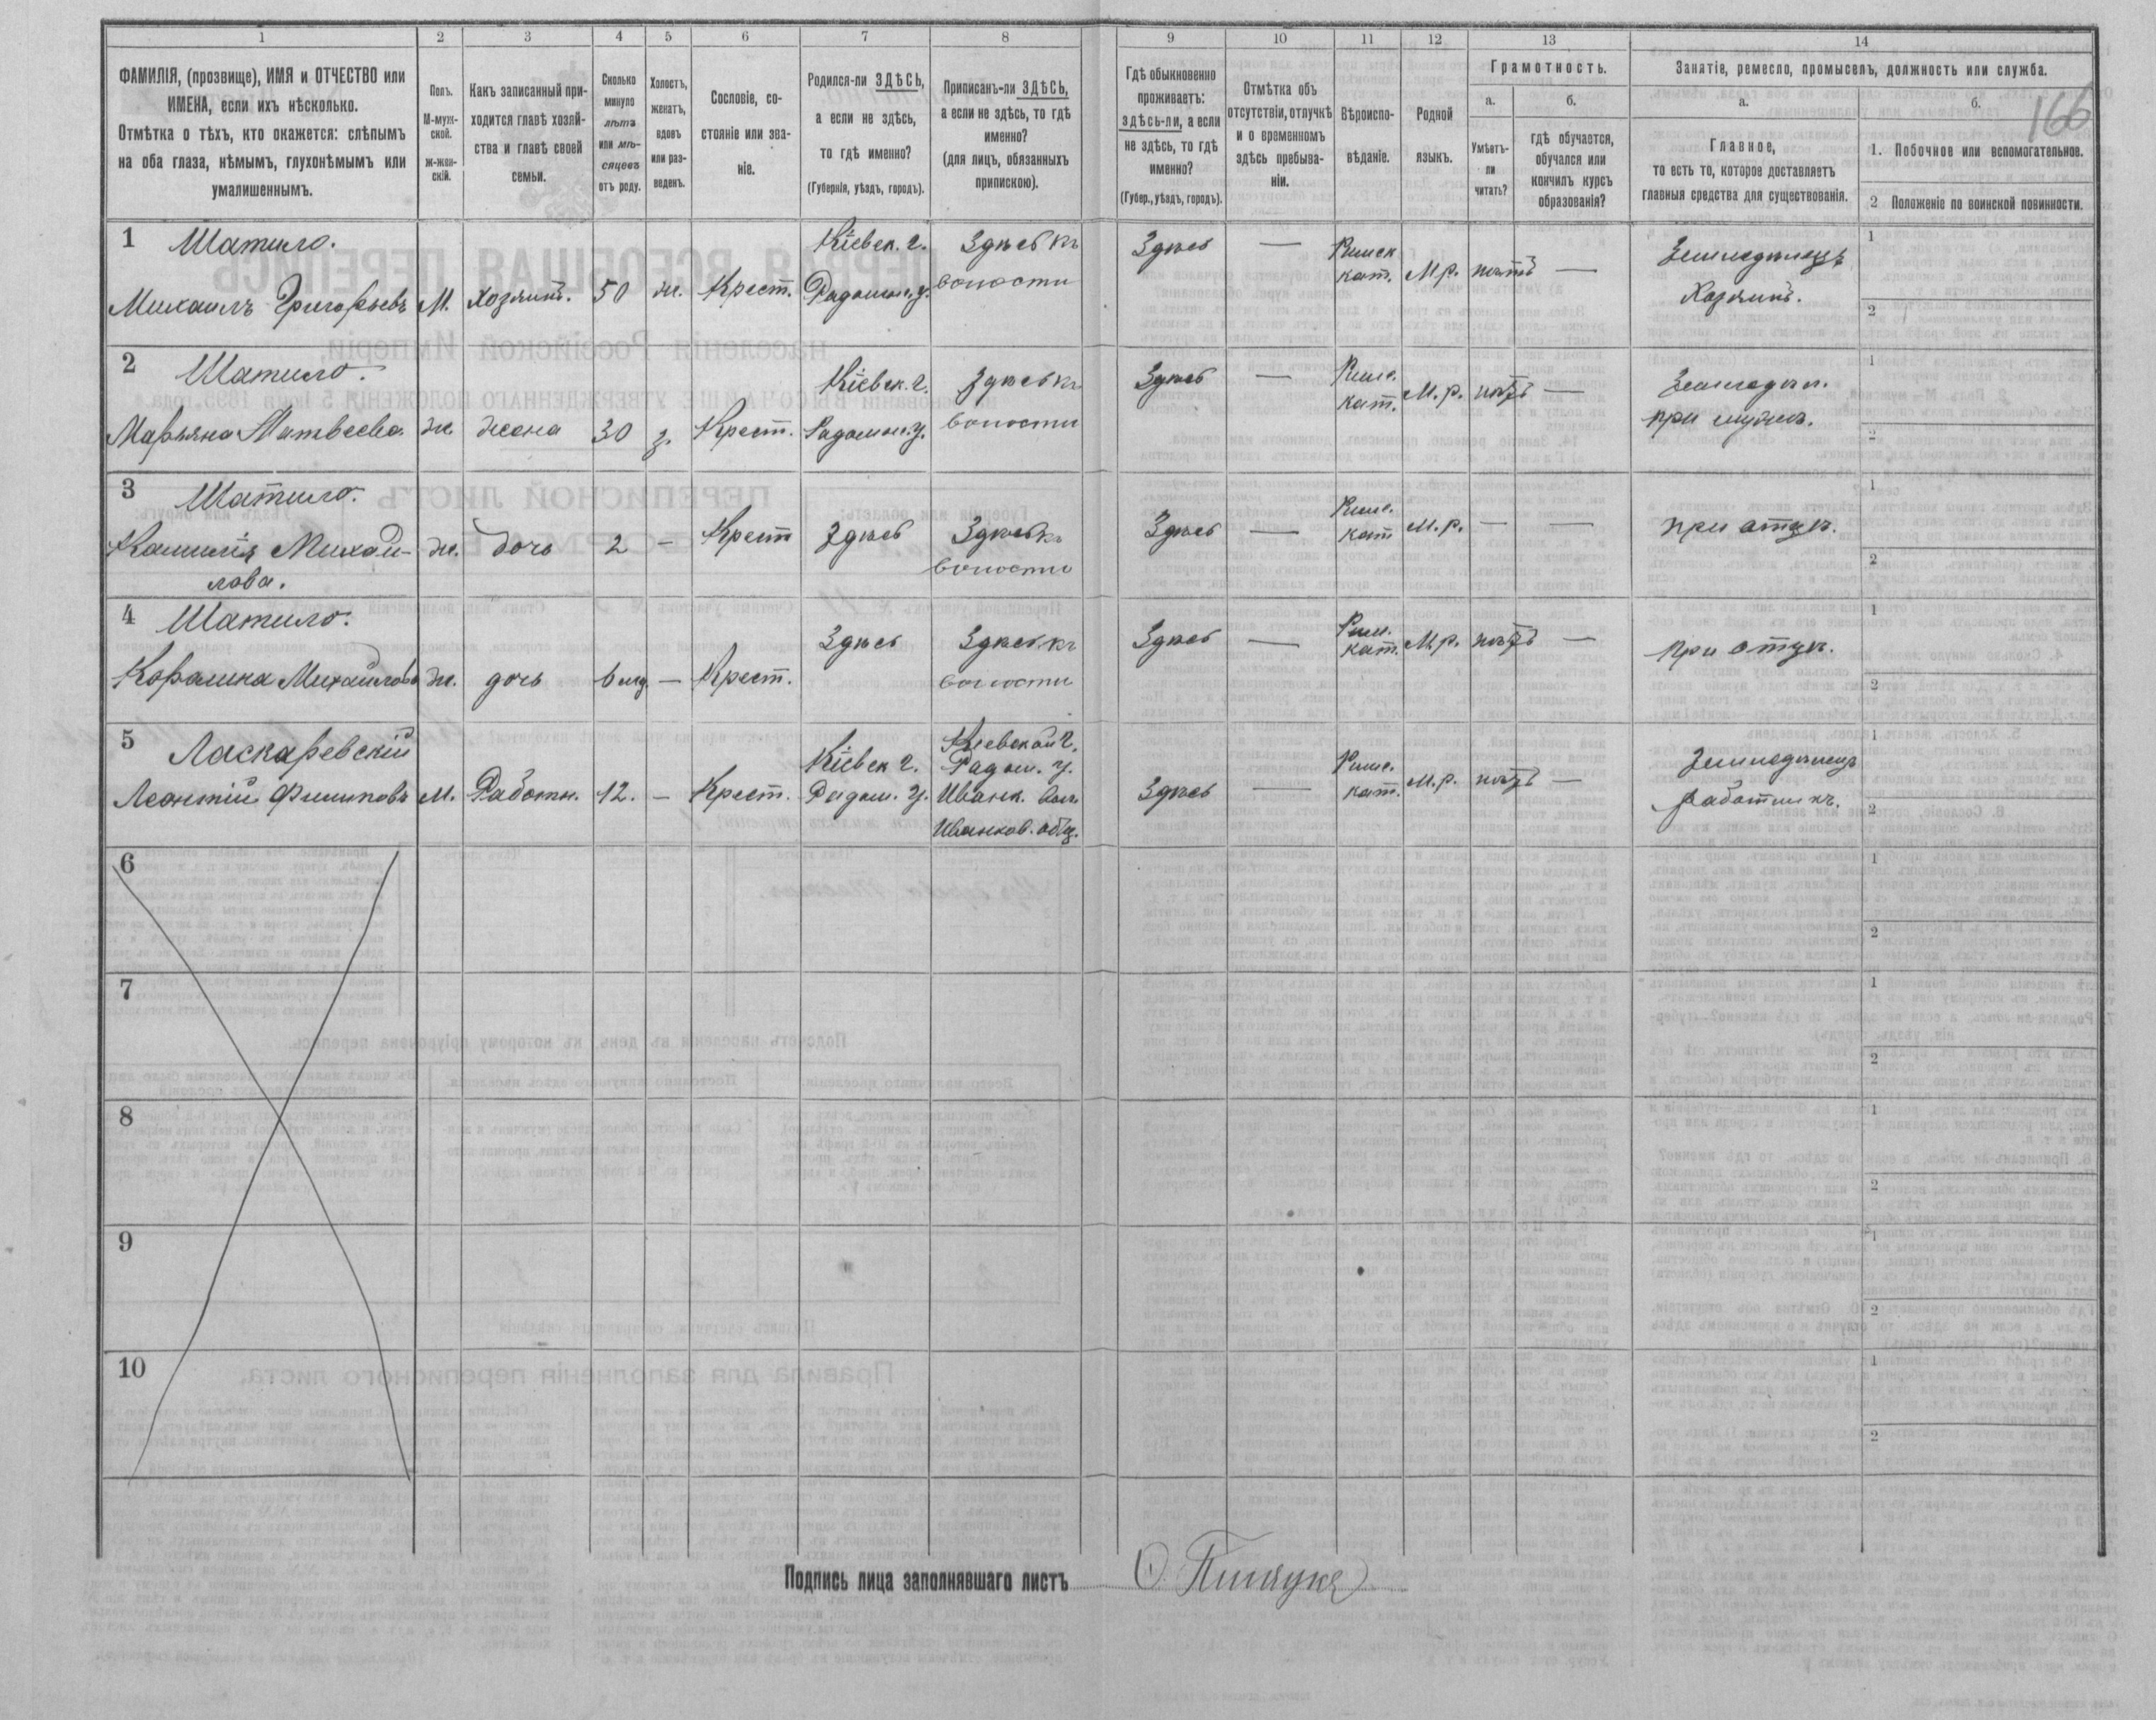 1 2 3 4 5 6 7 8 9 10 11 12 13 14
ФАМИЛІЯ, (прозвище), ИМЯ и ОТЧЕСТВО или
ИМЕНА, если ихъ нѣсколько.
Отмѣтка о тѣхъ, кто окажется: слѣпымъ
на оба глаза, нѣмымъ, глухонѣмымъ или
умалишеннымъ.
Полъ.
М-муж-
ской.
ж-жен-
скій.
Какъ записанный при-
ходится главѣ хозяй-
ства и главѣ своей
семьи.
Сколько
минуло
лѣтъ
или мѣ-
сяцевъ
отъ роду.
Холостъ,
женатъ,
вдовъ
или раз-
веденъ.
Сословіе, со-
стояніе или зва-
ніе.
Родился-ли ЗДѢСЬ,
а если не здѣсь,
то гдѣ именно?
(Губернія, уѣздъ, городъ).
Приписанъ-ли ЗДѢСЬ,
а если не здѣсь, то гдѣ
именно?
(для лицъ, обязанныхъ
припискою).
Гдѣ обыкновенно
проживаетъ:
здѣсь-ли, а если
не здѣсь, то гдѣ
именно?
(Губер., уѣздъ, городъ).
Отмѣтка объ
отсутствіи, отлучкѣ
и о временномъ
здѣсь пребыва-
ніи.
Вѣроиспо-
вѣданіе.
Родной
языкъ.
Грамотность.
а.
Умѣетъ-
ли
читать?
б.
гдѣ обучается,
обучался или
кончилъ курсъ
образованія?
Занятіе, ремесло, промыселъ, должность или служба.
а.
Главное,
то есть то, которое доставляетъ
главныя средства для существованія.
б.
166
1. Побочное или вспомогательное.
2 Положеніе по воинской повинности.
1 Шатило.
Михаилъ Григорьевъ М. Хозяинъ. 50 ж. Крест.
Кіевск. г.
Радомыс. у.
Здѣсь къ
волости
Здѣсь —
Римск
кат.
М.р. нѣтъ —
Земледѣлецъ
Хозяинъ.
1
2
2 Шатило.
Марьяна Матвеева ж. жена 30 з. Крест.
Кіевск. г.
Радомыс. у.
Здѣсь къ
волости
Здѣсь —
Римс.
кат.
М.р. нѣтъ —
Земледѣл.
при мужѣ.
1
2
3 Шатило.
Камилія Михаи-
лова.
ж. дочь 2 — Крест Здѣсь
Здѣсь къ
волости
Здѣсь —
Римс.
кат
М.р. — —
при отцѣ.
1
2
4 Шатило.
Каралина Михаилова ж. дочь 6 мѣс. — Крест. Здѣсь
Здѣсь къ
волости
Здѣсь —
Рим.
кат.
М.р. нѣтъ —
при отцѣ.
1
2
5 Ласкаревскій
Леонтій Филиповъ М. Работн. 12. — Крест.
Кіевск г.
Радом. у.
Кіевской г.
Радом. у.
Иванк. вол.
Иванков. общ.
Здѣсь —
Римс.
кат.
М.р. нѣтъ —
Земледѣлецъ
работникъ.
1
2
6
1
2
7
1
2
8
1
2
9
1
2
10
1
2
Подпись лица заполнявшаго листъ